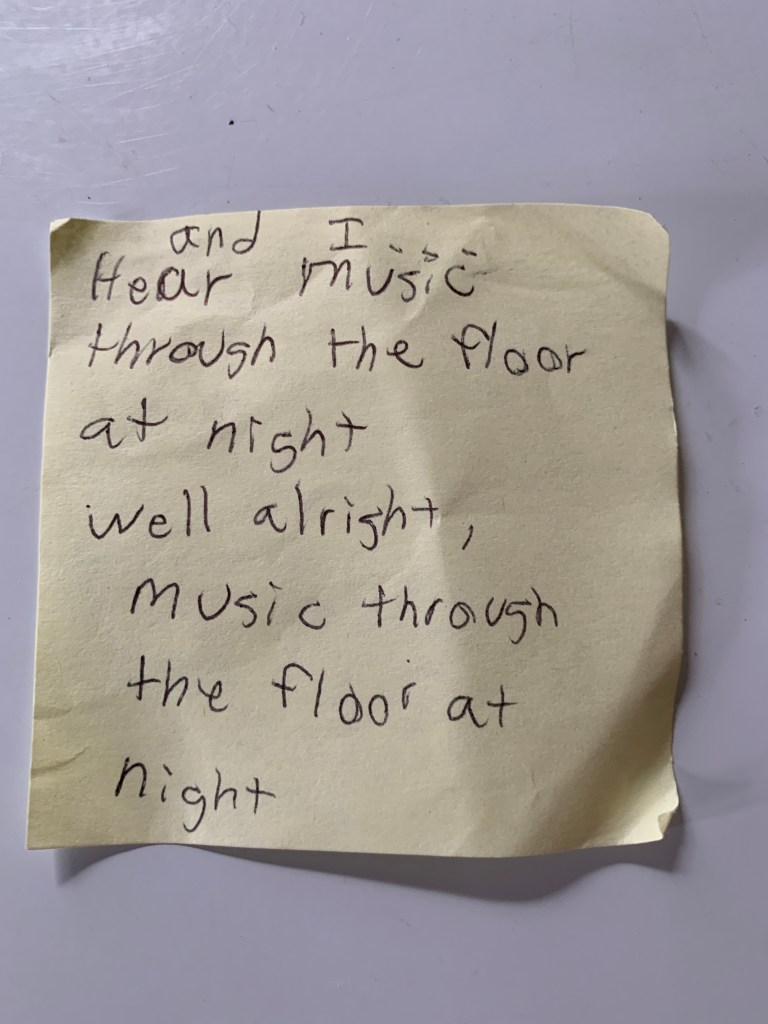 and I
Hear music
through the floor
at night
well alright,
music through
the floor at
night